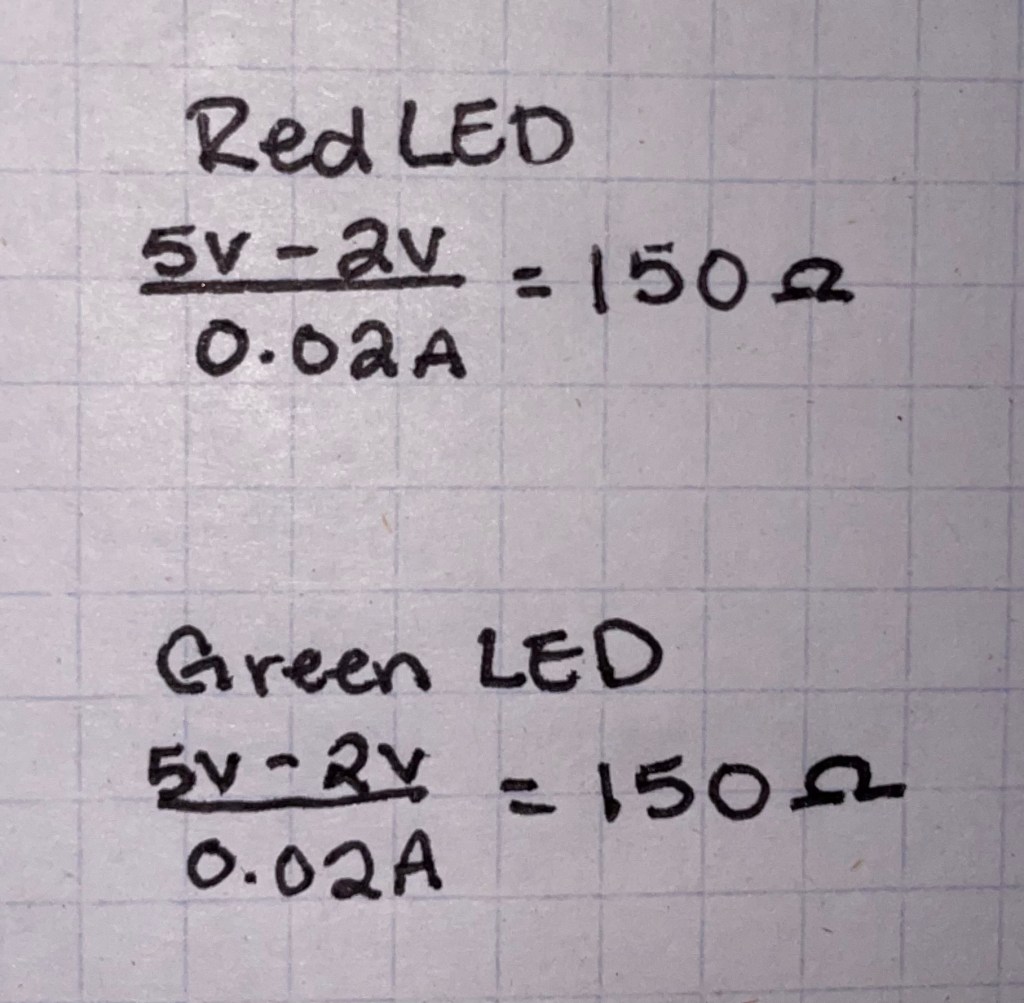 Red LED
5V - 2V
0.02A
= 150 Ω
Green LED
5V - 2V
0.02A
= 150 Ω